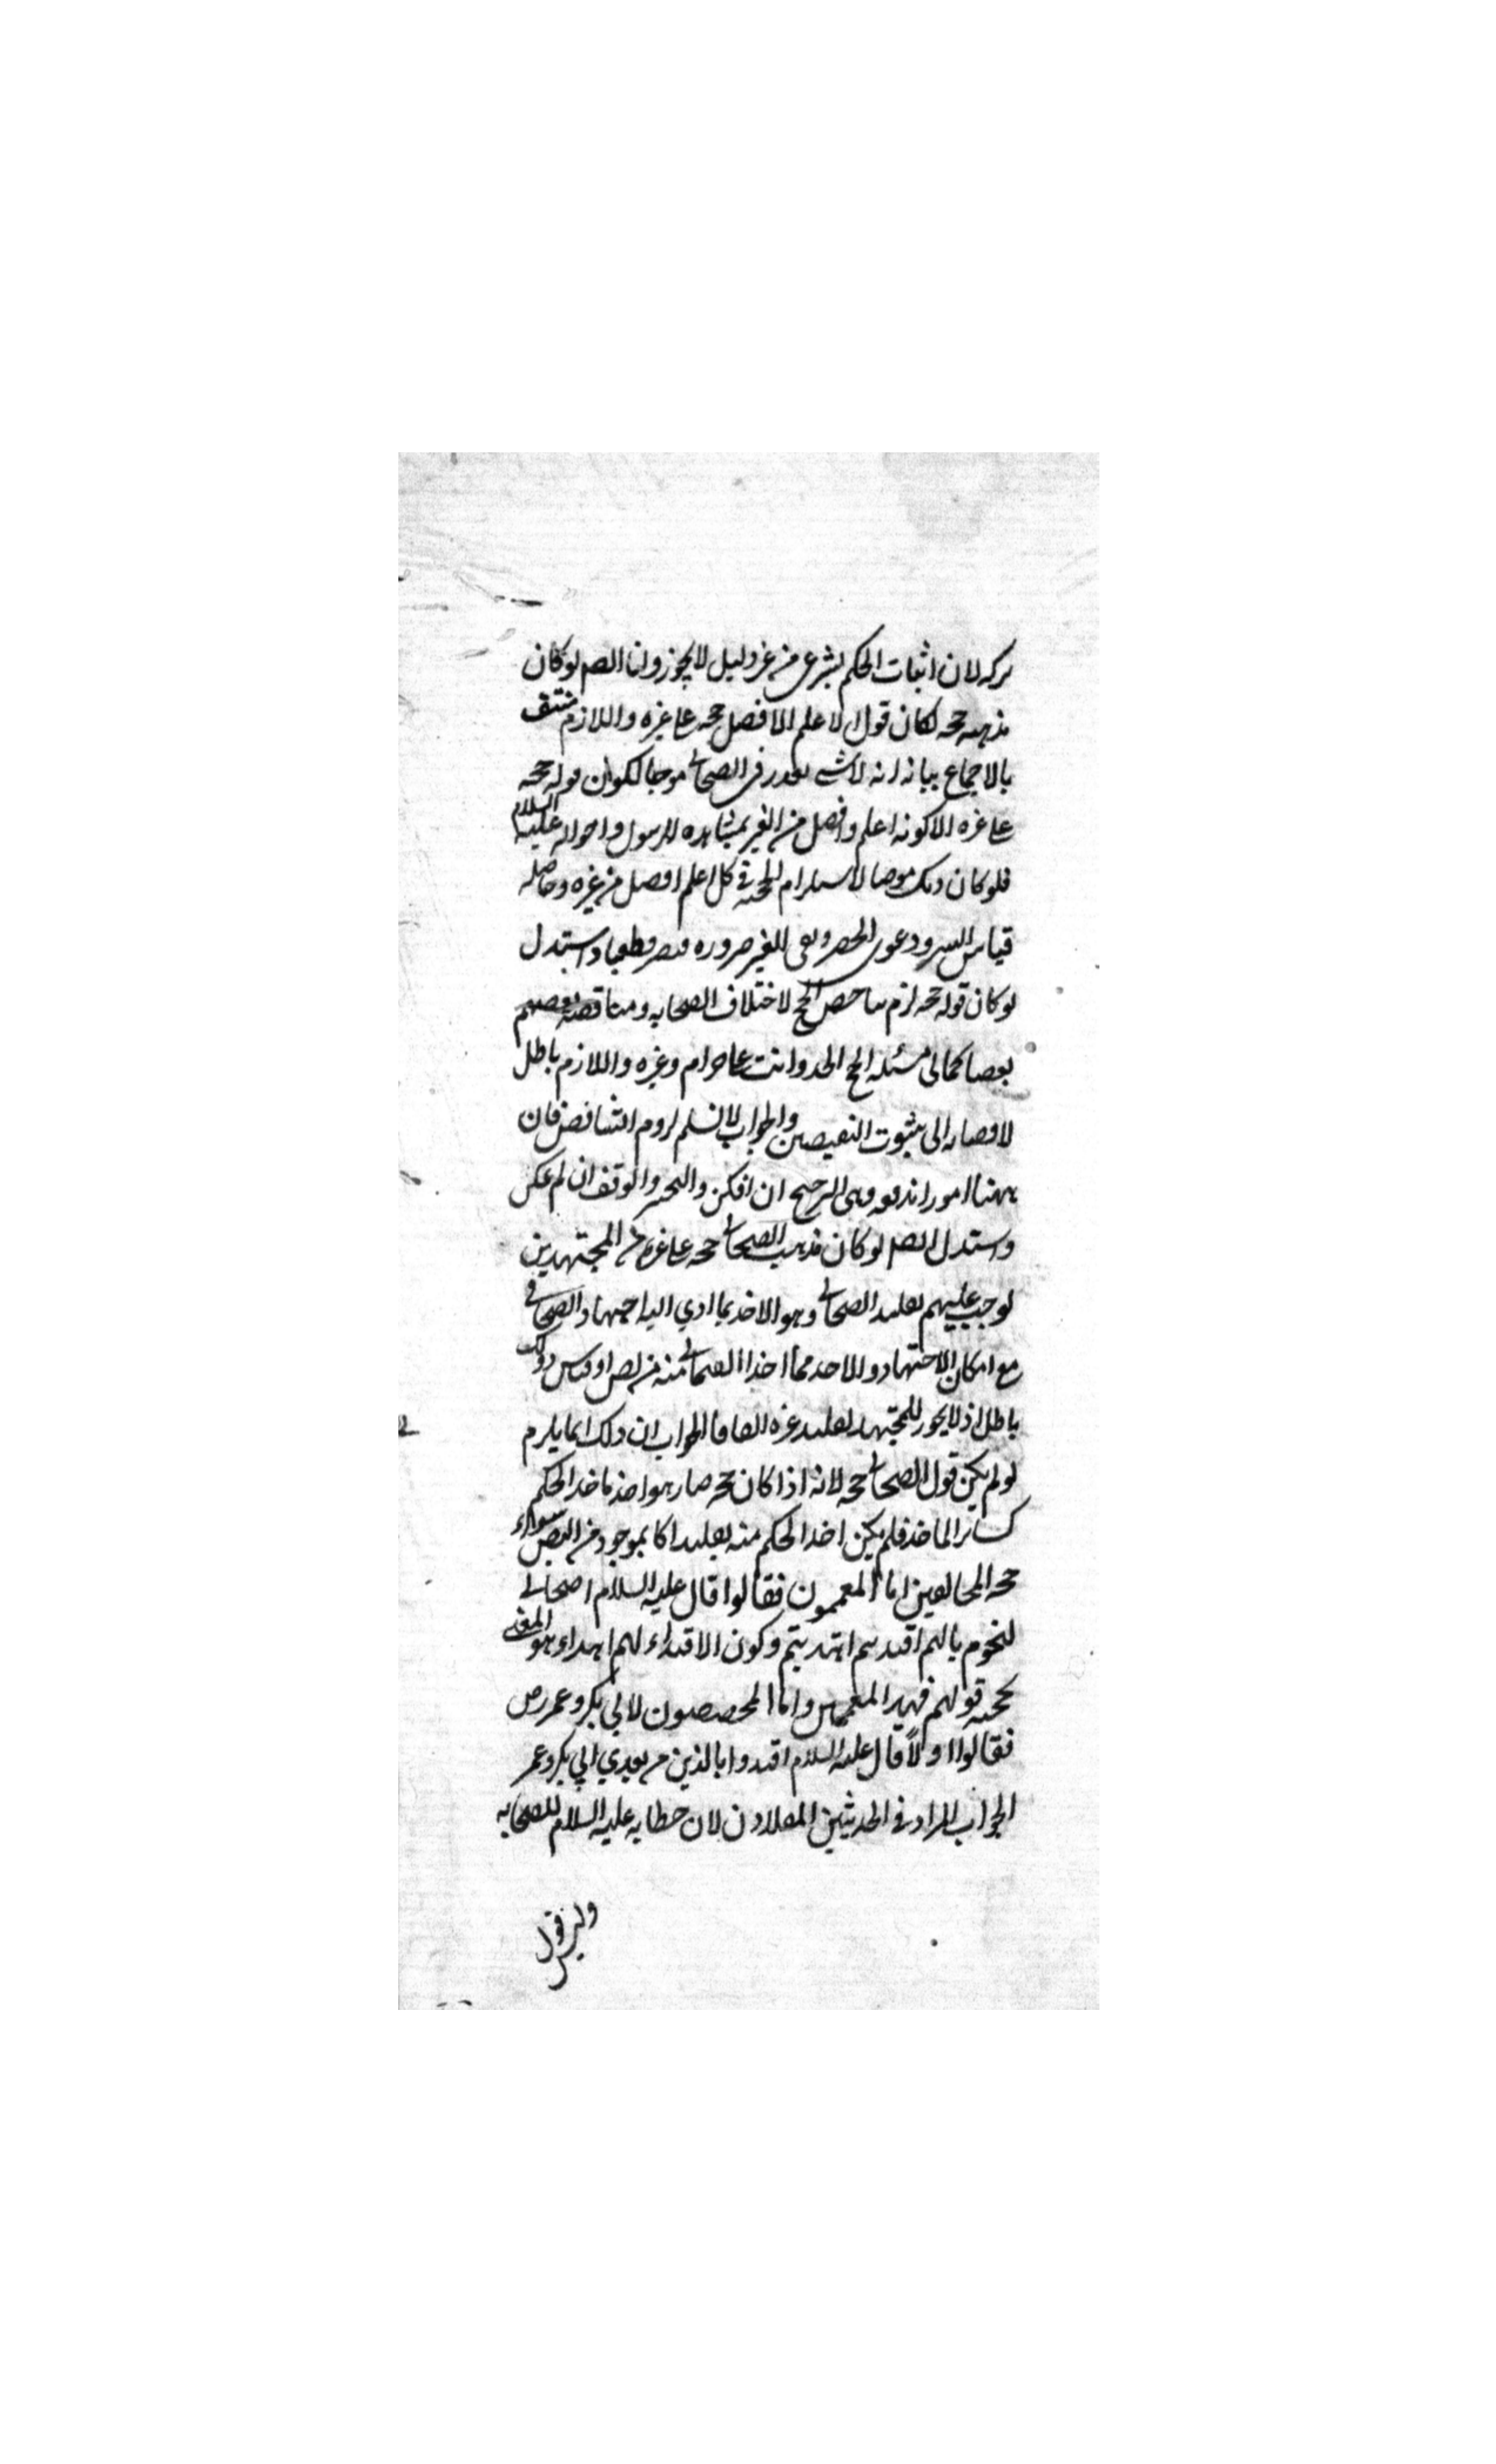 تركه لان اثبات الحكم الشرعي من غير دليل لا يجوز ولنا ايضا لو كان
مذهبه حجة لكان قول الاعلم الافضل حجة على غيره واللازم منتف
بالاجماع بيانه انه لا شيء يقدر في الصحابي موجبا لكون قوله حجة
على غيره الا كونه اعلم وافضل من الغير بمشاهده الرسول واحواله عليه السلام
فلو كان ذلك لاستلزام الحجية في كل اعلم افضل من غيره وحاصله
قياس السبر ودعوى الحصر ونفى للغير ضرورة واستدل
لو كان قوله حجة لزم تناقض الحجج لاختلاف الصحابه ومناقضة بعضهم
بعضا كما في مسئلة الجد وانت على حرام وغيره واللازم باطل
لافضائه الى ثبوت النقيضين والجواب لا نسلم لزوم التناقض فان
ههنا امورا تدفعه وهى الترجيح ان امكن والتخيير والوقف ان لم يمكن
واستدل ايضا لو كان مذهب الصحابي حجة على غيره من المجتهدين
لوجب عليهم تقليد الصحابي وهو الاخذ بما ادي اليه اجتهاد الصحابي
مع امكان الاجتهاد والاخذ مما اخذ الصحابي منه من نص او قياس وذلك
باطل اذ لا يجوز للمجتهد تقليد غيره اتفاقا الجواب ان ذلك انما يلزم
لو لم يكن قول الصحابي حجة لانه اذا كان حجة صار هو احد مآخذ الحكم
كسائر المآخذ فلم يكن اخذ الحكم منه تقليدا كما بموجود من النص سواء
حجة المخالفين اما المعممون فقالوا قال عليه السلام اصحابي
كالنجوم بايهم اقتديتم اهتديتم وكون الاقتداء لهم اهتداء هو المعنى
بحجية قولهم فهذا المعممين واما المخصصون لابي بكر وعمر رض
فقالوا اولا قال عليه السلام اقتدوا بالذين من بعدي ابي بكر وعمر
الجواب المراد في الحديثين المقلدون لان خطابه عليه السلام للصحابه
وليس قول